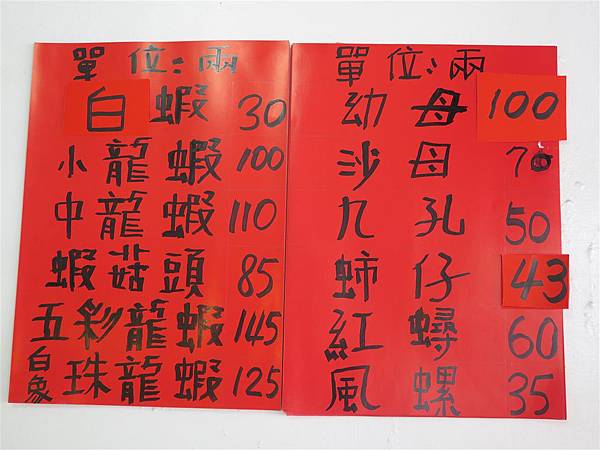 單位:兩
白蝦 30
小龍蝦 100
中龍蝦 110
蝦菇頭 85
五彩龍蝦 145
白象珠龍蝦 125
單位:兩
幼母 100
沙母 70
九孔 50
蚶仔 43
紅蟳 60
風螺 35